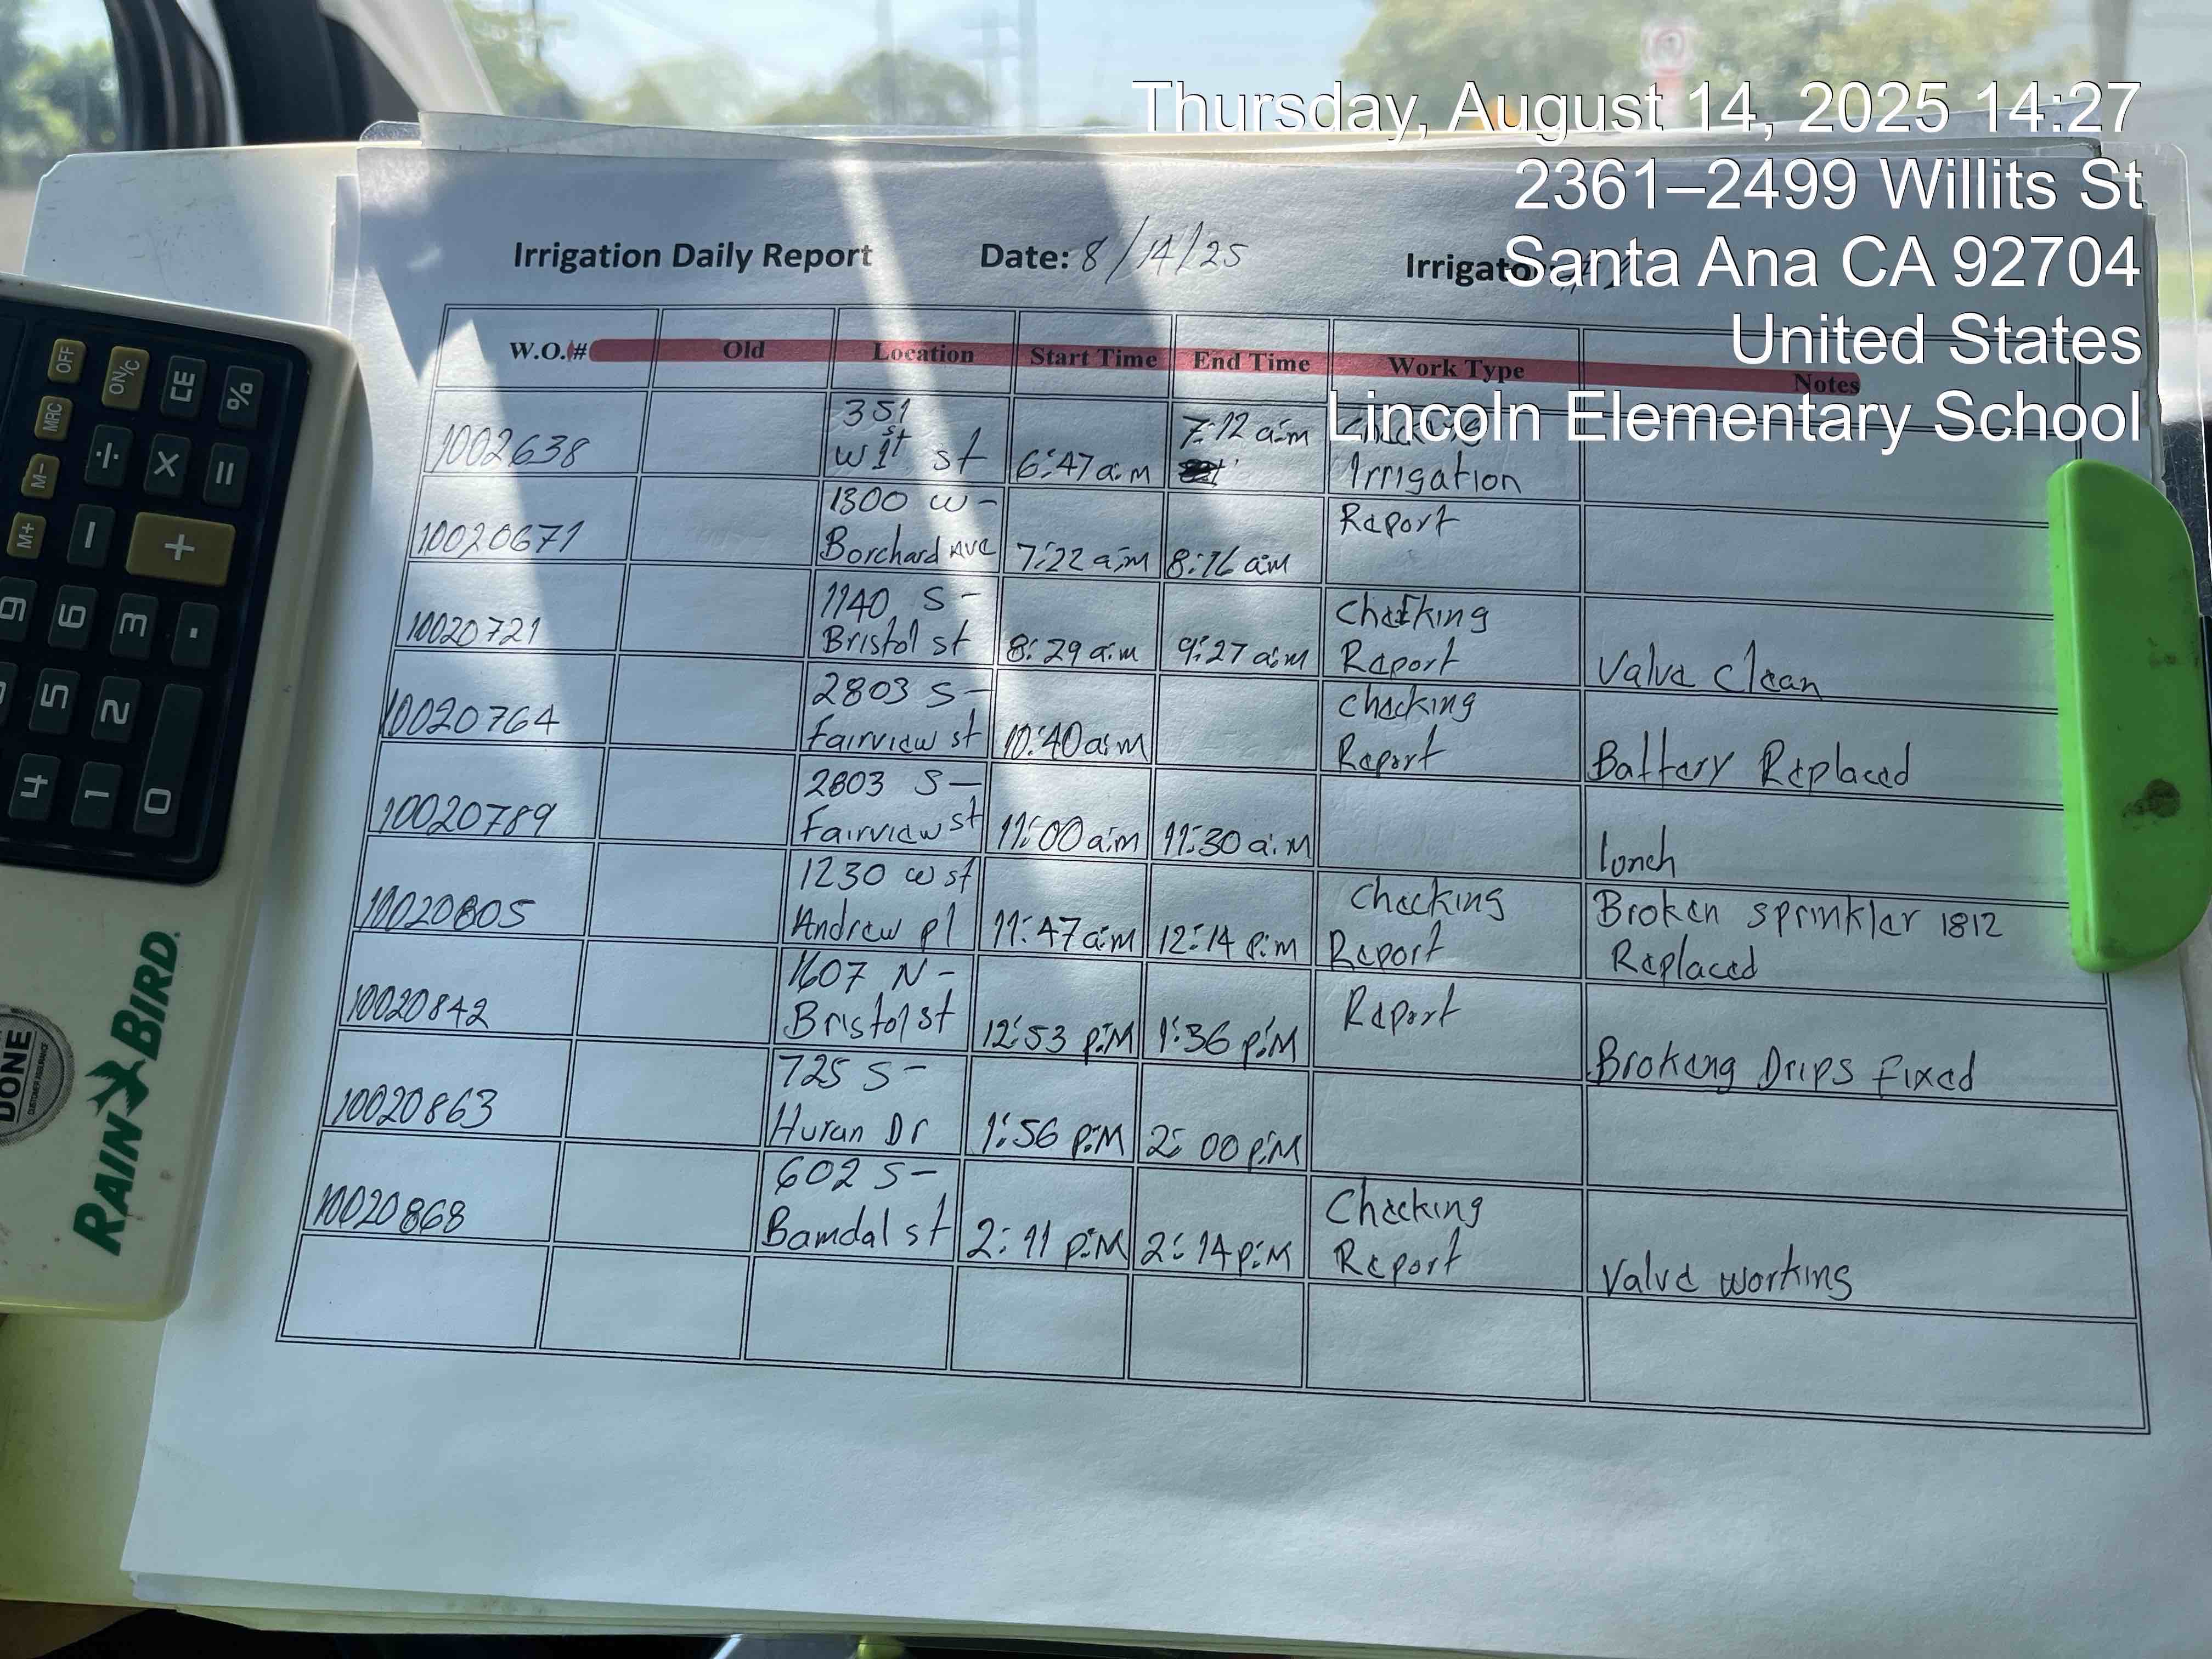 Thursday, August 14, 2025 14:27
2361–2499 Willits St
Santa Ana CA 92704
United States
Lincoln Elementary School
Irrigation Daily Report Date: 8/14/25 Irrigator
W.O.# Old Location Start Time End Time Work Type Notes
351
7:12 a.m Checking
1002638 W 1st st 6:47 a.m Irrigation
1300 W- Report
10020671 Borchard Ave 7:22 a.m 8:16 am
1140 S- Checking
10020721 Bristol st 8:29 a.m 9:27 a.m Report Valve clean
2803 S- Checking
10020764 Fairview st 10:40 a.m Report Battery Replaced
2803 S-
10020789 Fairview st 11:00 a.m 11:30 a.m lonch
1230 w st Checking Broken sprinkler 1812
10020805 Andrew pl 11:47 a.m 12:14 p.m Report Replaced
1607 N- Report
10020842 Bristol st 12:53 p.M 1:36 p.M Brokeng Drips fixed
725 S-
10020863 Huran Dr 1:56 p.M 2:00 p.M
602 S- Checking
10020868 Bamdal st 2:11 p.M 2:14 p.M Report Valve working
OFF ON/C CE %
MRC ÷ × =
M-
M+ − +
9 6 3 .
5 2
4 1 0
DONE
RAIN BIRD